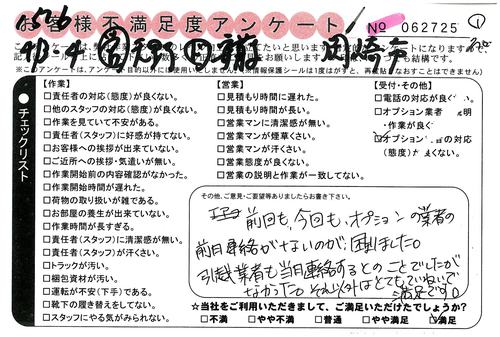 お客様不満足度アンケート
No 062725 ①
岡崎市
※このアンケートは、アンケート目的以外には使用いたしません。
チェックリスト
【作業】
□責任者の対応(態度)が良くない。
□他のスタッフの対応(態度)が良くない。
□作業を見ていて不安がある。
□責任者(スタッフ)に好感が持てない。
□お客様への挨拶が出来ていない。
□ご近所への挨拶・気遣いが無い。
□作業開始前の内容確認がなかった。
□作業開始時間が遅れた。
□荷物の取り扱いが雑である。
□お部屋の養生が出来ていない。
□作業時間が長すぎる。
□責任者(スタッフ)に清潔感が無い。
□責任者(スタッフ)が汗くさい。
□トラックが汚い。
□梱包資材が汚い。
□運転が不安(下手)である。
□靴下の履き替えをしてない。
□スタッフにやる気がみられない。
【営業】
□見積もり時間に遅れた。
□見積もり時間が長い。
□営業マンに清潔感が無い。
□営業マンが煙草くさい。
□営業マンが汗くさい。
□営業態度が良くない。
□営業の説明と作業が一致してない。
【受付・その他】
□電話の対応が良く
□オプション業者
・作業が良く
オプション の対応
(態度)が くない。
その他、ご意見・ご要望等ありましたらお書き下さい。
前回も、今回も、オプションの業者の
前日連絡がないのが、困りました。
引越業者も当日連絡するとのことでしたが
なかった。それ以外はとてもていねいで
満足です。
☆当社をご利用いただきまして、ご満足いただけてしょうか?
□不満 □やや不満 □普通 □やや満足 満足